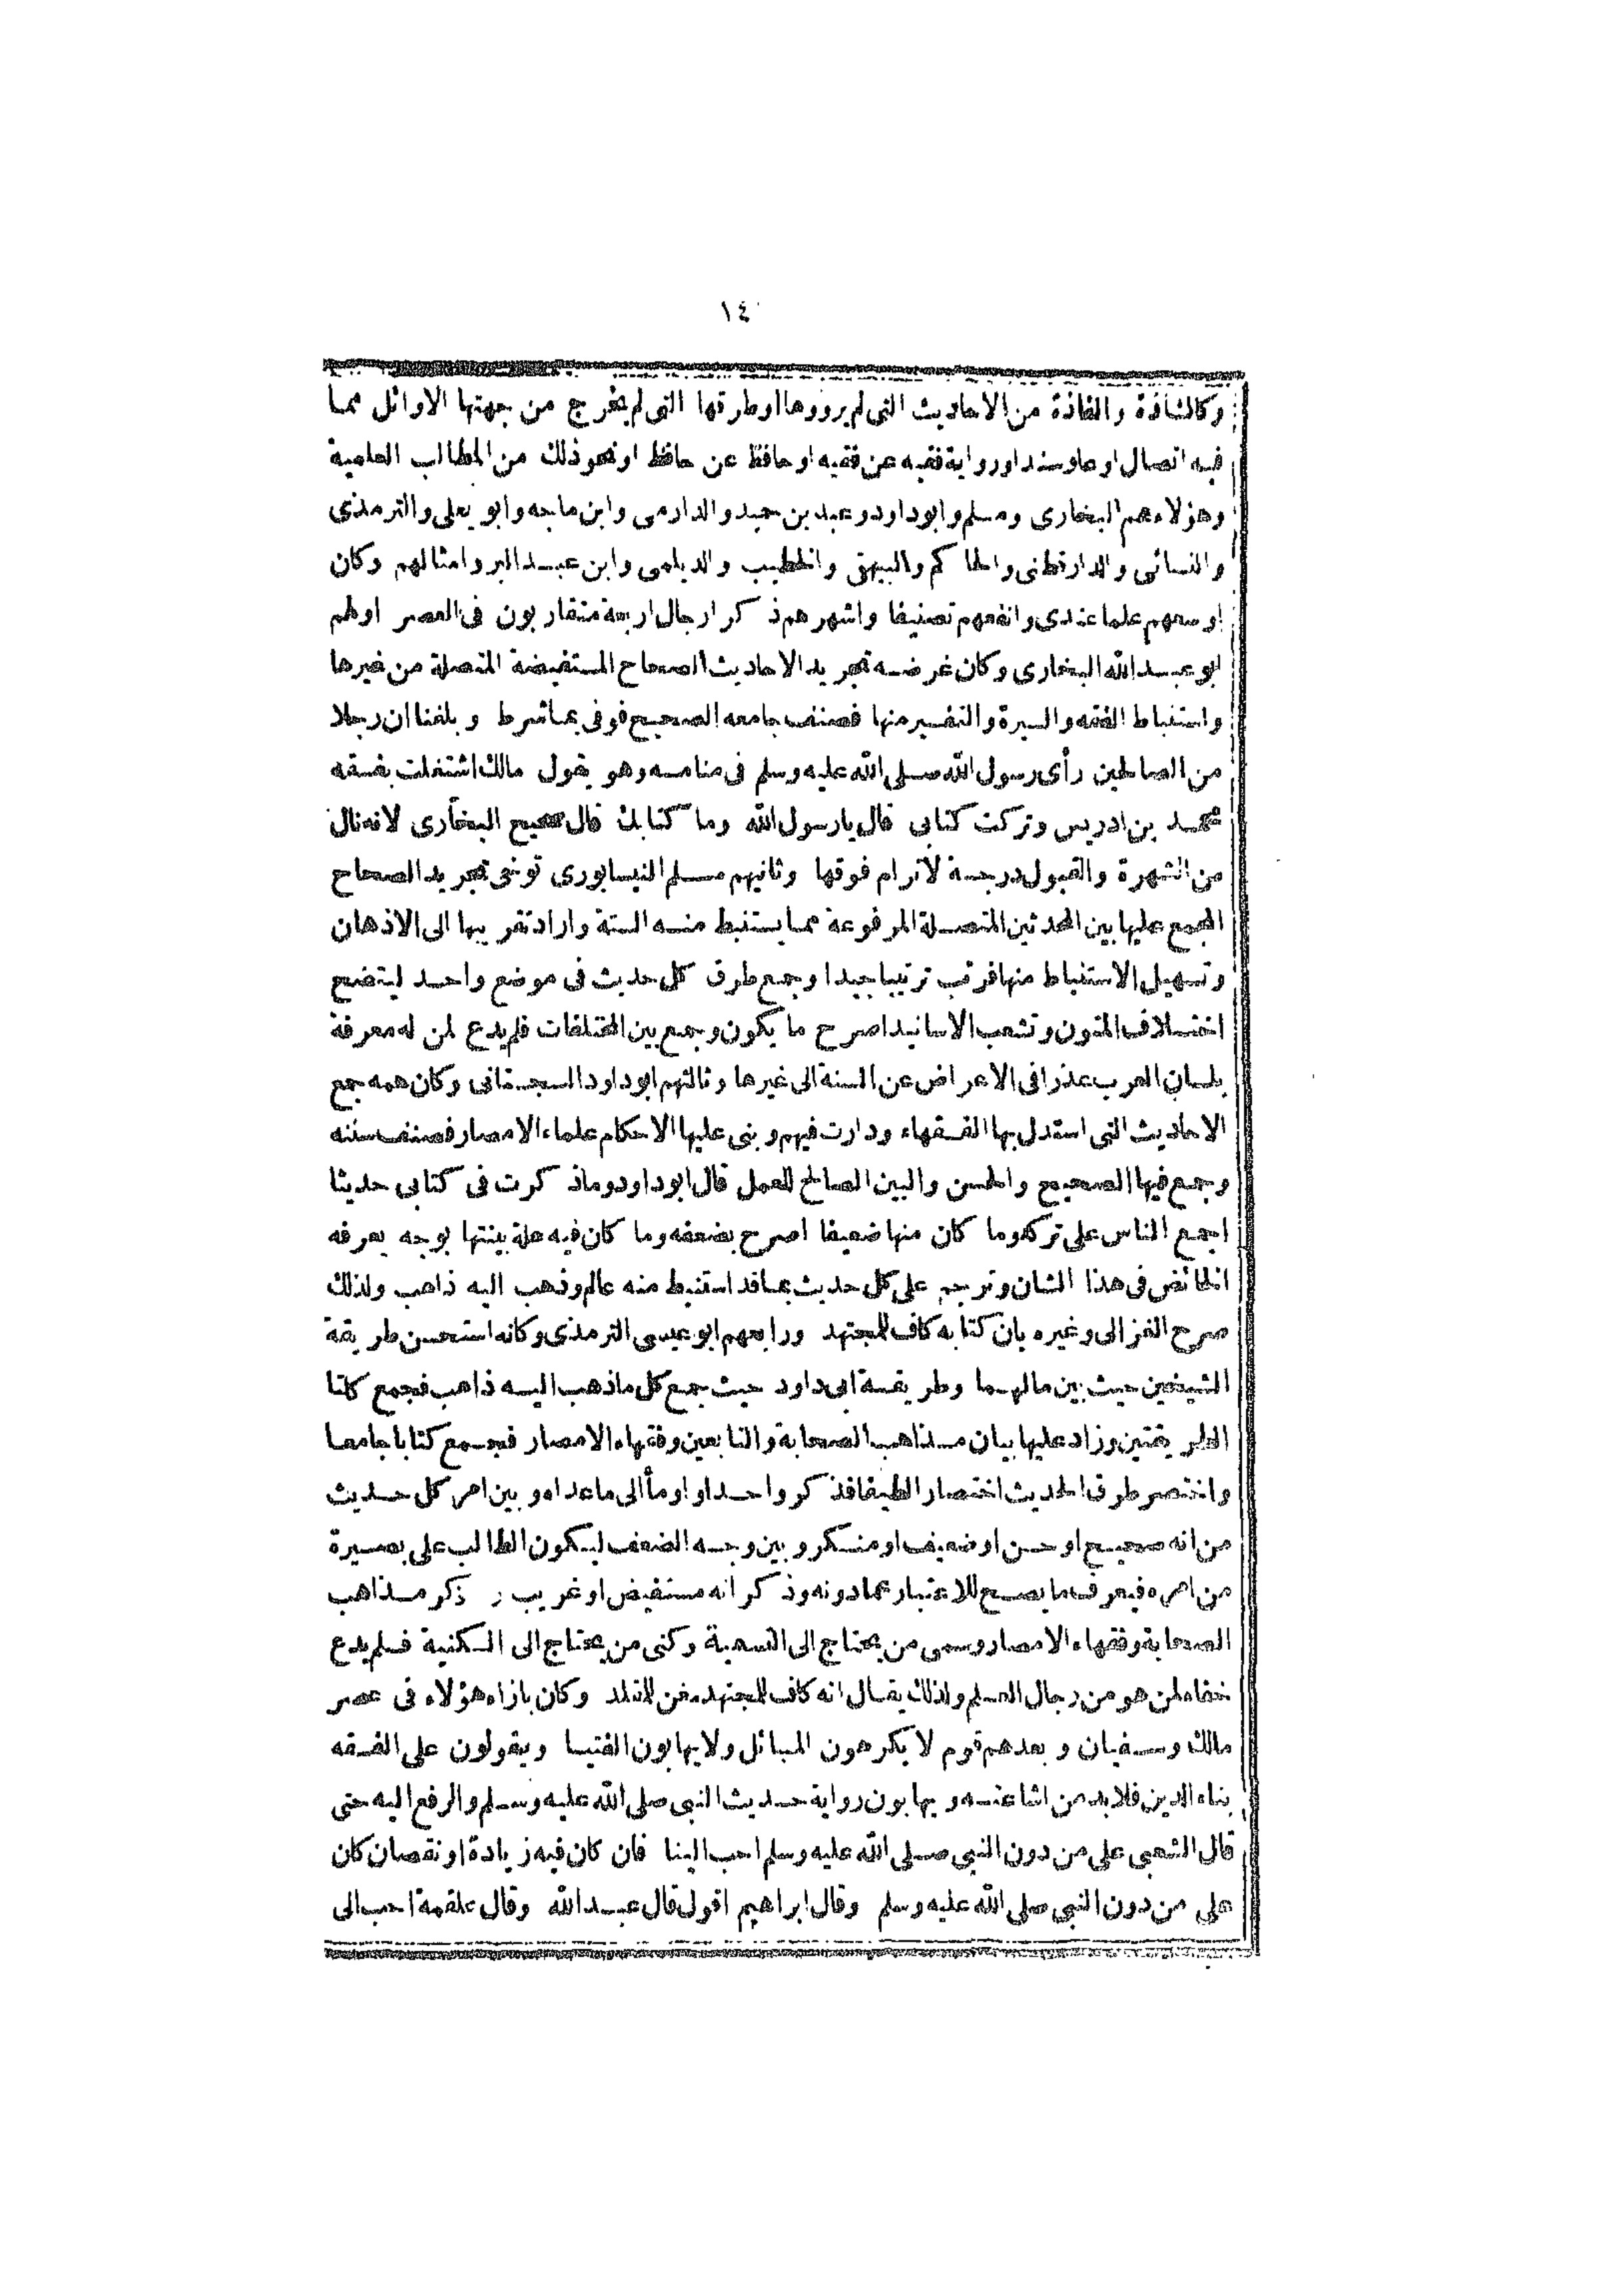 ١٤
وكالشاذة والفاذة من الاحاديث التى لم يرووها اوطرقها التى لم يخرج من جهتها الاوائل مما
فيه اتصال او علو سند اورواية فقيه عن فقيه او حافظ عن حافظ او نحو ذلك من المطالب العلمية
وهؤلاء هم البخارى ومسلم وابوداود وعبد بن حميد والدارمى وابن ماجه وابو يعلى والترمذى
والنسائى والدارقطنى والحاكم والبيهقى والخطيب والديلمى وابن عبد البر وامثالهم وكان
اوسعهم علما عندى وانفعهم تصنيفا واشهرهم ذكرا رجال اربعة متقاربون فى العصر اولهم
ابو عبد الله البخارى وكان غرضه تجريد الاحاديث الصحاح المستفيضة المتصلة من غيرها
واستنباط الفقه والسيرة والتفسير منها فصنف جامعه الصحيح فوفى بما شرط وبلغنا ان رجلا
من الصالحين رأى رسول الله صلى الله عليه وسلم فى منامه وهو يقول مالك اشتغلت بفقه
محمد بن ادريس وتركت كتابى قال يارسول الله وما كتابك قال صحيح البخارى لانه نال
من الشهرة والقبول درجة لاترام فوقها وثانيهم مسلم النيسابورى توخى تجريد الصحاح
المجمع عليها بين المحدثين المتصلة المرفوعة مما يستنبط منه السنة واراد تقريبها الى الاذهان
وتسهيل الاستنباط منها فرتب ترتيبا جيدا وجمع طرق كل حديث فى موضع واحد ليتضح
اختلاف المتون وتشعب الاسانيد اصرح ما يكون وجمع بين المختلفات فلم يدع لمن له معرفة
بلسان العرب عذرا فى الاعراض عن السنة الى غيرها وثالثهم ابوداود السجستانى وكان همه جمع
الاحاديث التى استدل بها الفقهاء ودارت فيهم وبنى عليها الاحكام علماء الامصار فصنف سننه
وجمع فيها الصحيح والحسن والبين الصالح للعمل قال ابوداود وماذكرت فى كتابى حديثا
اجمع الناس على تركه وما كان منها ضعيفا اصرح بضعفه وما كان فيه علة بينتها بوجه يعرفه
الخائض فى هذا الشان وترجم على كل حديث بما قد استنبط منه عالم وذهب اليه ذاهب ولذلك
صرح الغزالى وغيره بان كتابه كاف للمجتهد ورابعهم ابو عيسى الترمذى وكانه استحسن طريقة
الشيخين حيث بين مالهما وطريقة ابى داود حيث جمع كل ماذهب اليه ذاهب فجمع كلتا
الطريقتين وزاد عليها بيان مذاهب الصحابة والتابعين وفقهاء الامصار فجمع كتابا جامعا
واختصر طرق الحديث اختصارا لطيفا فذكر واحدا واومأ الى ماعداه وبين امر كل حديث
من انه صحيح او حسن او ضعيف او منكر وبين وجه الضعف ليكون الطالب على بصيرة
من امره فيعرف ما يصح للاعتبار عمادونه وذكر انه مستفيض او غريب وذكر مذاهب
الصحابة وفقهاء الامصار وسمى من يحتاج الى التسمية وكنى من يحتاج الى الكنية فلم يدع
خفاء لمن هو من رجال العلم ولذلك يقال انه كاف للمجتهد مغن للمقلد وكان بازاء هؤلاء فى عصر
مالك وسفيان وبعدهم قوم لا يكرهون المسائل ولايهابون الفتيا ويقولون على الفقه
بناء الدين فلابد من اشاعته ويهابون رواية حديث النبى صلى الله عليه وسلم والرفع اليه حتى
قال الشعبى على من دون النبى صلى الله عليه وسلم احب الينا فان كان فيه زيادة او نقصان كان
على من دون النبى صلى الله عليه وسلم وقال ابراهيم اقول قال عبد الله وقال علقمة احب الى